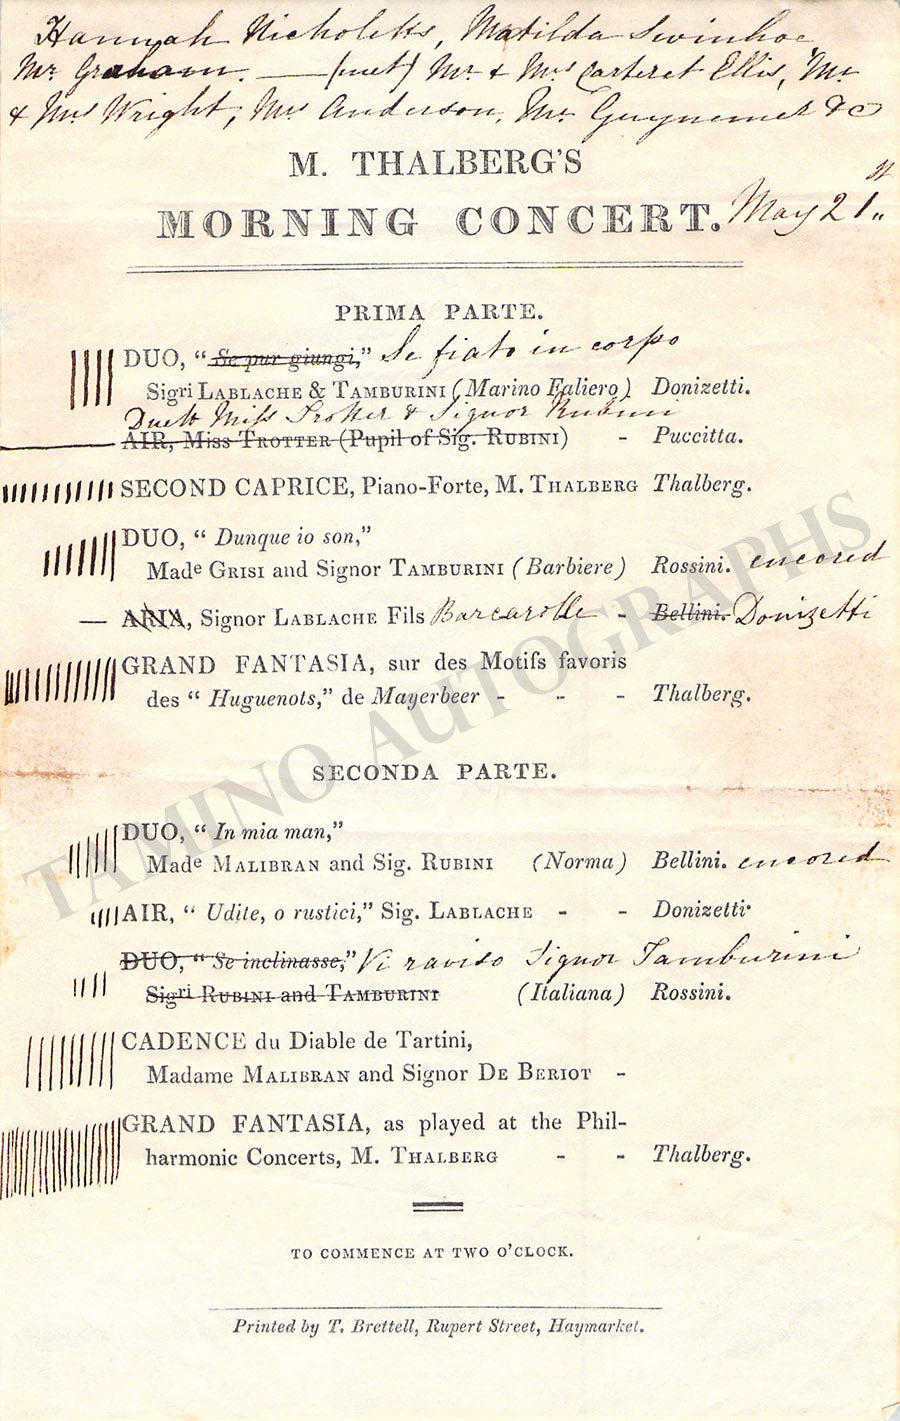 Hannah Nicholetts, Matilda Swinhoe
Mr Graham. — (met) Mr & Mrs Carteret Ellis, Mr
& Mrs Wright, Mrs Anderson, Mr Guynemer &c
M. THALBERG'S
MORNING CONCERT. May 21st
PRIMA PARTE.
DUO, “Se pur giungi,” Se fiato in corpo
Sigri LABLACHE & TAMBURINI (Marino Faliero) Donizetti.
Duett Miss Trotter & Signor Rubini
AIR, Miss TROTTER (Pupil of Sig. RUBINI) - Puccitta.
SECOND CAPRICE, Piano-Forte, M. THALBERG Thalberg.
DUO, “Dunque io son,”
Made GRISI and Signor TAMBURINI (Barbiere) Rossini. encored
— ARIA, Signor LABLACHE Fils Barcarolle - Bellini. Donizetti
GRAND FANTASIA, sur des Motifs favoris
des “Huguenots,” de Mayerbeer - - - Thalberg.
SECONDA PARTE.
DUO, “In mia man,”
Made MALIBRAN and Sig. RUBINI (Norma) Bellini. encored
AIR, “Udite, o rustici,” Sig. LABLACHE - - Donizetti.
DUO, “Se inclinasse,” Vi raviso Signor Tamburini
Sigri RUBINI and TAMBURINI (Italiana) Rossini.
CADENCE du Diable de Tartini,
Madame MALIBRAN and Signor DE BERIOT -
GRAND FANTASIA, as played at the Phil-
harmonic Concerts, M. THALBERG - - Thalberg.
TO COMMENCE AT TWO O'CLOCK.
Printed by T. Brettell, Rupert Street, Haymarket.
TAMINO AUTOGRAPHS